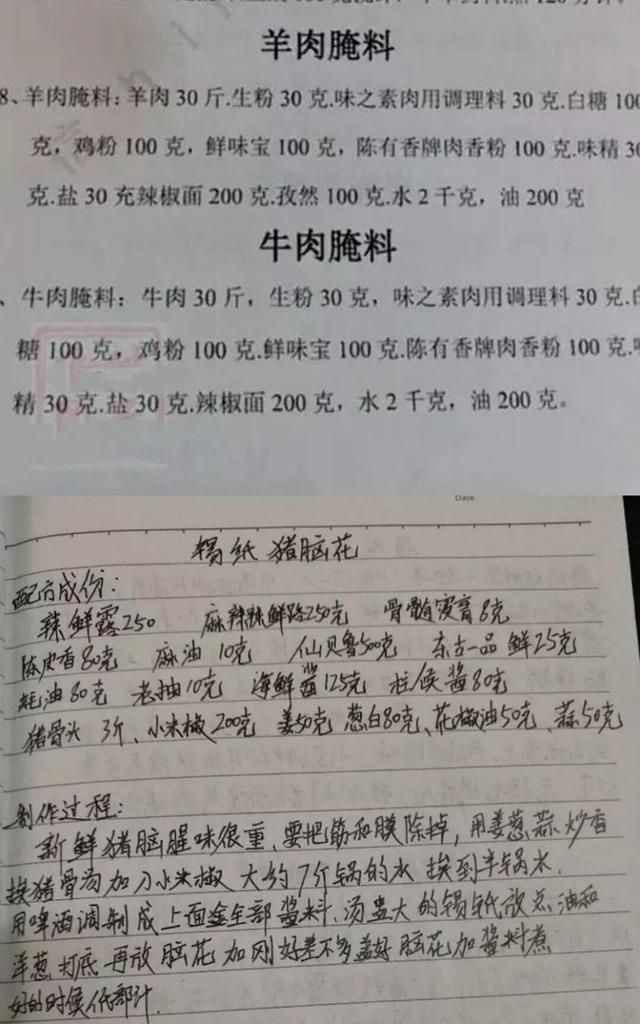 羊肉腌料
8、羊肉腌料：羊肉 30 斤.生粉 30 克.味之素肉用调理料 30 克.白糖 100
克，鸡粉 100 克，鲜味宝 100 克，陈有香牌肉香粉 100 克.味精 30
克.盐 30 充辣椒面 200 克.孜然 100 克.水 2 千克，油 200 克
牛肉腌料
、牛肉腌料：牛肉 30 斤，生粉 30 克，味之素肉用调理料 30 克.白
糖 100 克，鸡粉 100 克.鲜味宝 100 克.陈有香牌肉香粉 100 克.
精 30 克.盐 30 克.辣椒面 200 克，水 2 千克，油 200 克。
Date
锡纸 猪脑花
配方成份：
辣鲜露250 麻辣辣鲜路250克 骨髓浸膏8克
陈皮香80克 麻油 10克 仙贝鲁500克 东古一品鲜25克
蚝油80克 老抽10克 海鲜酱125克 柱侯酱80克
猪骨头 3斤、小米椒200克 姜50克 葱白80克、花椒油50克、蒜50克
制作过程：
新鲜猪脑腥味很重、要把筋和膜除掉，用姜葱蒜炒香
挨猪骨汤加入小米椒 大约7斤锅的水 挨到半锅水.
用啤酒调制成上面全部酱料、汤盅大的锡纸放点油和
洋葱打底 再放脑花 加刚好差不多盖好脑花加酱料煮
好的时候